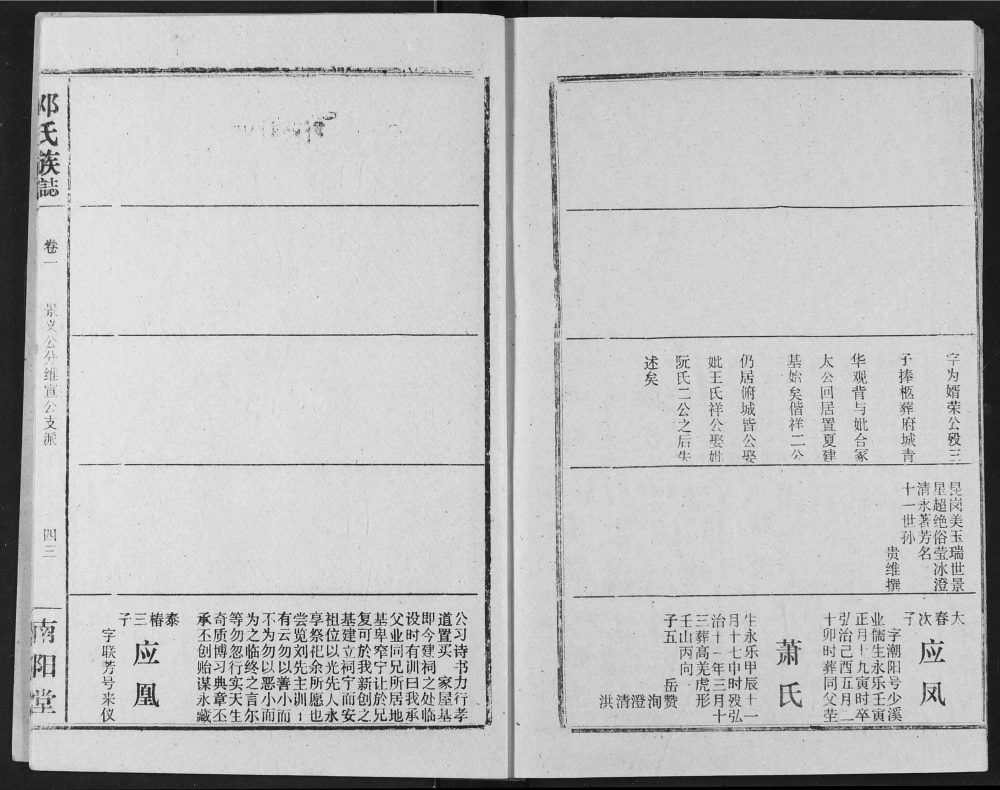 字为婿荣公殁三
子捧柩葬府城青
华观背与妣合冢
太公回居置夏建
基始矣偕祥二公
仍居俯城皆公娶
妣王氏祥公娶妣
阮氏二公之后失
述矣
昆岗美玉瑞世景
星超绝俗莹冰澄
清永著芳名
十一世孙
贵维撰
大春次子
应凤
字潮阳号少溪
业儒生永乐壬寅
正月十九寅时卒
弘治己酉五月二
十卯时葬同父茔
萧氏
生永乐甲辰十一
月十七申时殁弘
治十一年三月十
三葬高羌虎形
壬山丙向
子五 岳赞洵澄清洪
公习诗书力行孝
道置买一家屋基
即今建祠之处临
设时有训曰我承
父业同兄所居地
基卑窄宁让於兄
复可於我新创之
基建立祠宇而安
祖位以光先人永
享祭祀余所愿也
尝览刘先主训
有云勿以善小而
不为勿以恶小而
为之临终之言尔
等勿忽行实天生
奇质博习典章丕
承丕创贻谋永藏
泰椿三子
应凰
字联芳号来仪
邓氏族誌
卷一
景义公分维宣公支派
四三
南阳堂